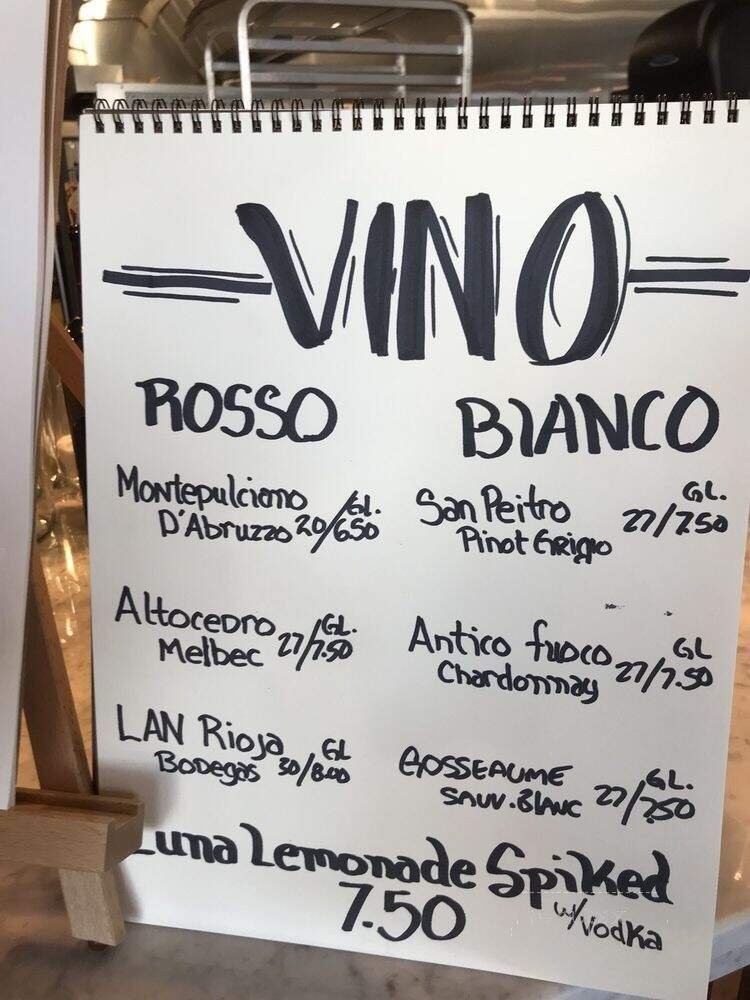 VINO
ROSSO
Montepulciano GL.
D'Abruzzo 20/6.50
Altocedro GL.
Melbec 27/7.50
LAN Rioja GL
Bodegas 30/8.00
BIANCO
San Peitro GL.
Pinot Grigio 27/7.50
Antico fuoco GL
Chardonnay 27/7.50
GOSSEAUME GL.
SAUV. BLANC 27/7.50
Luna Lemonade Spiked
7.50 w/Vodka